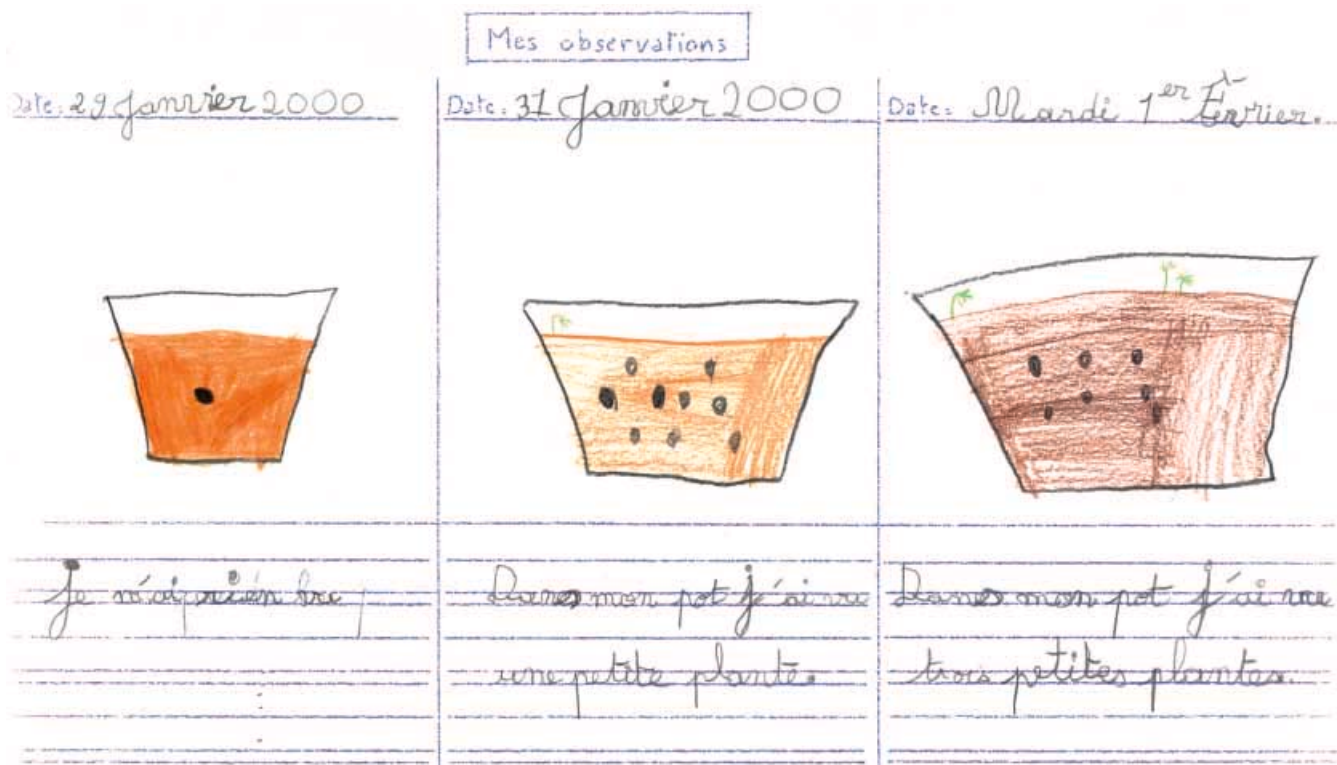 Mes observations
Date: 29 janvier 2000
Je n'ai rien vu
Date: 31 Janvier 2000
Dans mon pot j'ai vu
une petite plante.
Date: Mardi 1er Février.
Dans mon pot j'ai vu
trois petites plantes.